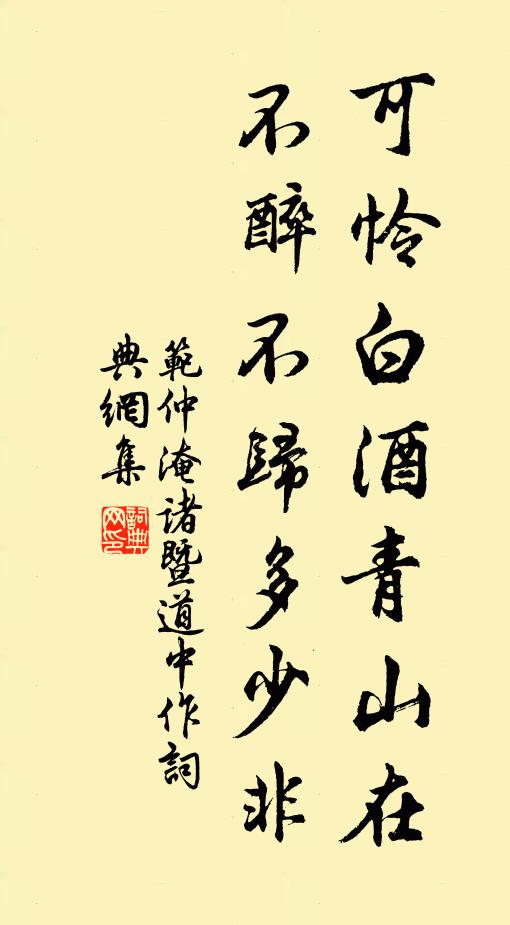 可怜白酒青山在
不醉不歸多少非
範仲淹諸暨道中作詞
典網集
詞典
网印